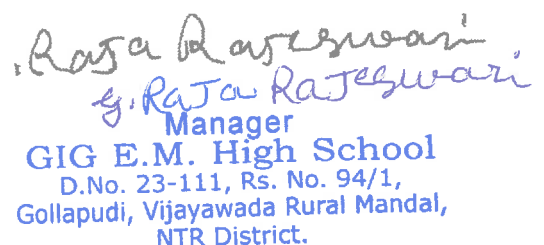 . Raja Rajeswari
G. Raja Rajeswari
Manager
GIG E.M. High School
D.No. 23-111, Rs. No. 94/1,
Gollapudi, Vijayawada Rural Mandal,
NTR District.